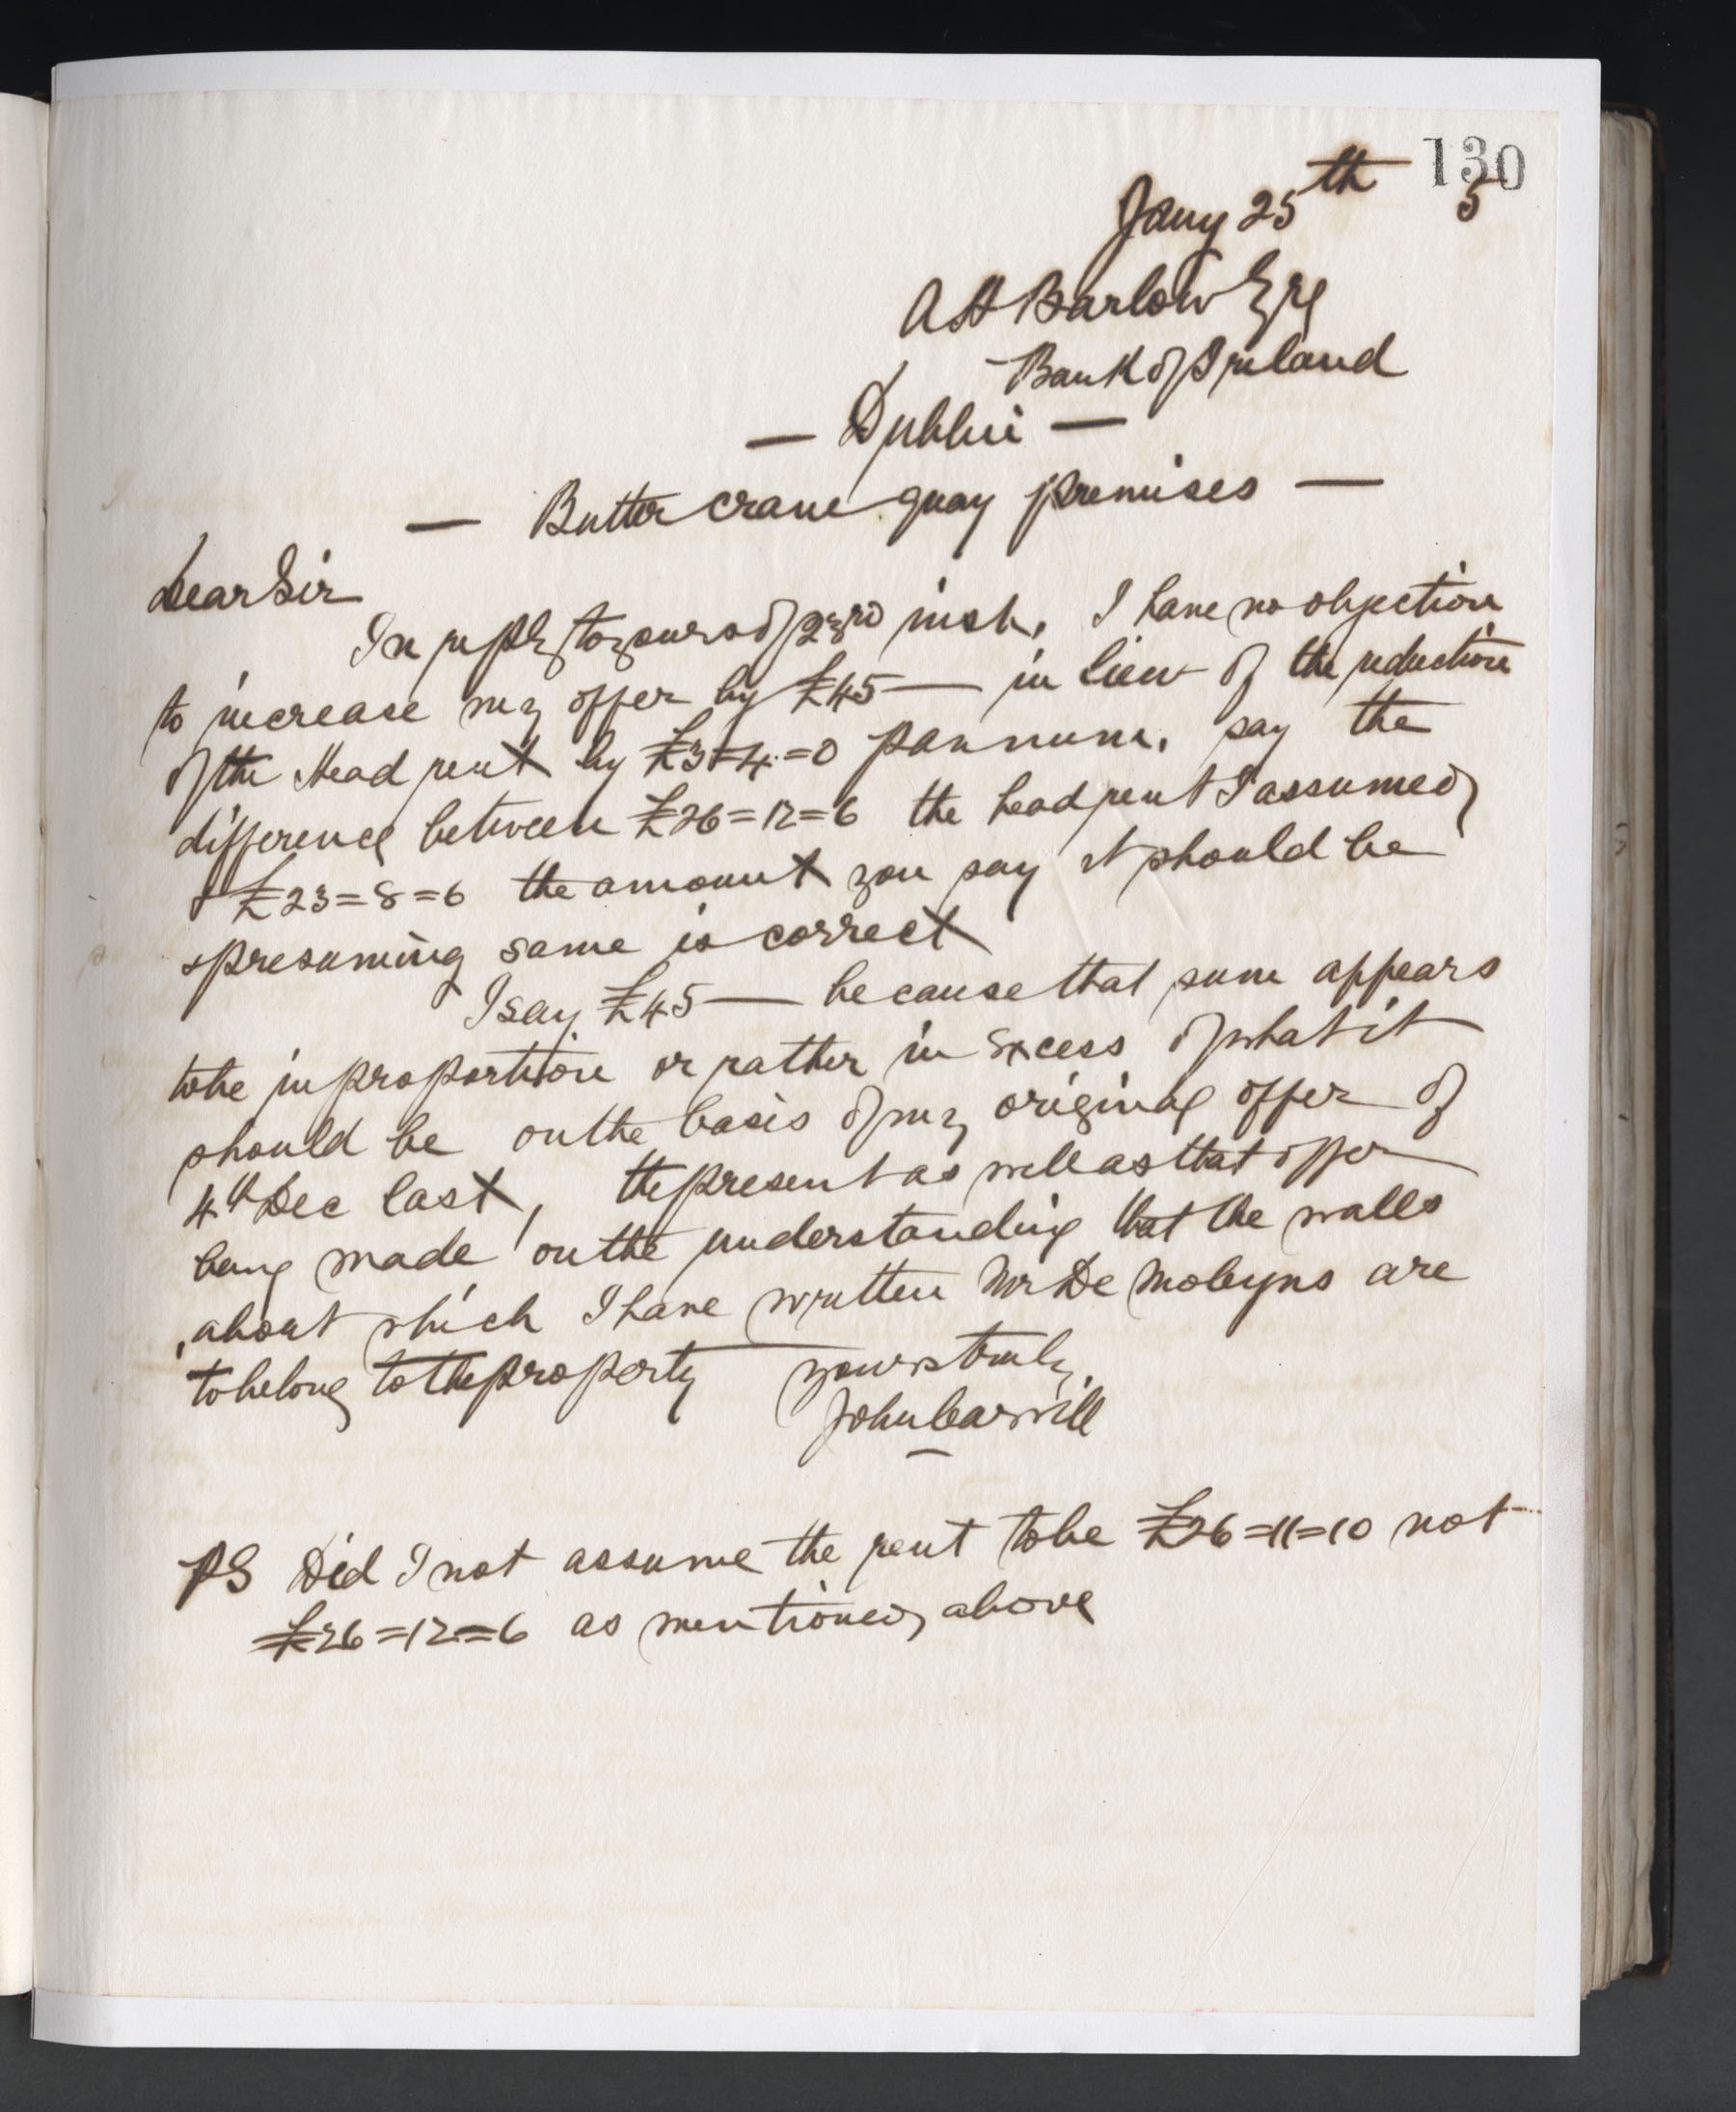 130
Jany 25th 5
A H Barlow Esq
Bank of Ireland
— Dublin —
— Butter crane quay premises —
Dear Sir
In reply to yours of 23rd inst, I have no objection
to increase my offer by £45 — in lieu of the reduction
of the Head rent by £3=4=0 pannum, say the
difference between £26=12=6 the head rent I assumed
& £23=8=6 the amount you say it should be
& presuming same is correct
I say £45 — because that sum appears
to be in proportion or rather in excess of what it
should be on the basis of my original offer of
4th Dec last, the present as well as that offer
being made on the understanding that the walls
about which I have written Mr De Moleyns are
to belong to the property yours truly
John Carvill
PS Did I not assume the rent to be £26=11=10 not
£26=12=6 as mentioned above